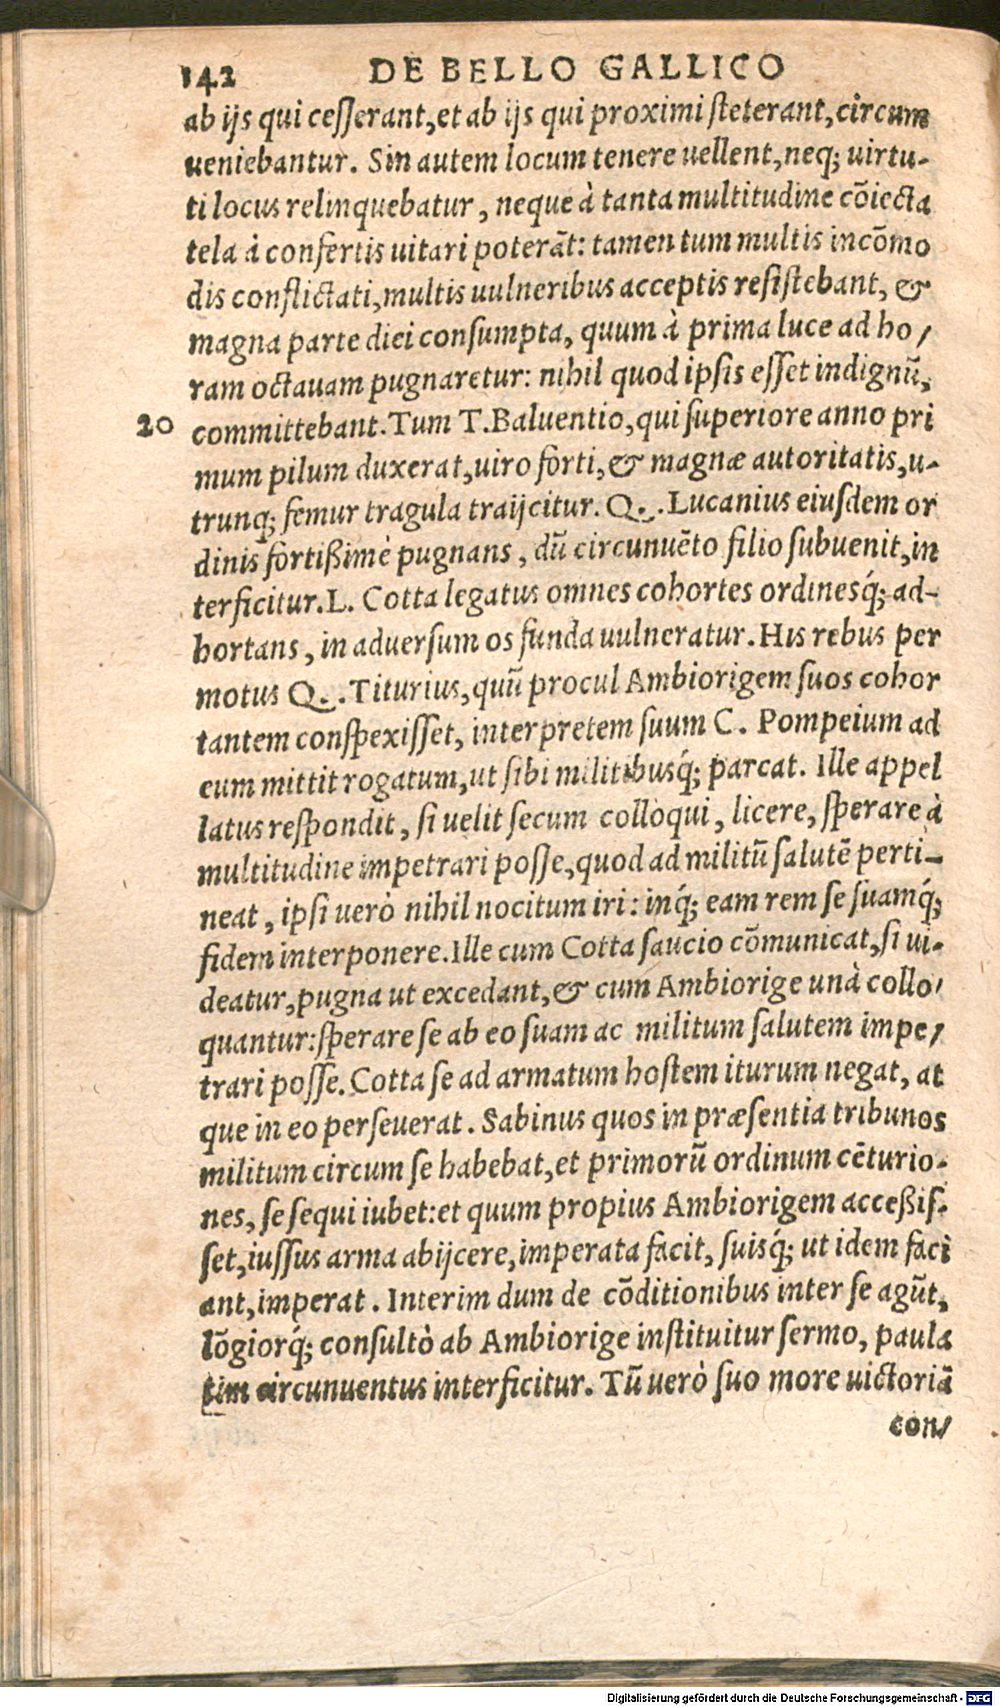 142 DE BELLO GALLICO
ab ijs qui cesserant, et ab ijs qui proximi steterant, circum
ueniebantur. Sin autem locum tenere uellent, neq; uirtu-
ti locus relinquebatur, neque à tanta multitudine cõiecta
tela à confertis uitari poterãt: tamen tum multis incõmo
dis conflictati, multis uulneribus acceptis resistebant, &
magna parte diei consumpta, quum à prima luce ad ho/
ram octauam pugnaretur: nihil quod ipsis esset indignũ,
20 committebant. Tum T. Baluentio, qui superiore anno pri
mum pilum duxerat, uiro forti, & magnæ autoritatis, u-
trunq; femur tragula traijcitur. Q. Lucanius eiusdem or
dinis fortißimè pugnans, dũ circunuẽto filio subuenit, in
terficitur. L. Cotta legatus omnes cohortes ordinesq́; ad-
hortans, in aduersum os funda uulneratur. His rebus per
motus Q. Titurius, quũ procul Ambiorigem suos cohor
tantem conspexisset, interpretem suum C. Pompeium ad
eum mittit rogatum, ut sibi militibusq́; parcat. Ille appel
latus respondit, si uelit secum colloqui, licere, sperare à
multitudine impetrari posse, quod ad militũ salutẽ perti-
neat, ipsi uerò nihil nocitum iri: inq́; eam rem se suamq́;
fidem interponere. Ille cum Cotta saucio cõmunicat, si ui-
deatur, pugna ut excedant, & cum Ambiorige unà collo/
quantur: sperare se ab eo suam ac militum salutem impe/
trari posse. Cotta se ad armatum hostem iturum negat, at
que in eo perseuerat. Sabinus quos in præsentia tribunos
militum circum se habebat, et primorũ ordinum cẽturio-
nes, se sequi iubet: et quum propius Ambiorigem acceßis-
set, iussus arma abijcere, imperata facit, suisq́; ut idem faci
ant, imperat. Interim dum de cõditionibus inter se agũt,
lõgiorq́; consultò ab Ambiorige instituitur sermo, paula
tim circunuentus interficitur. Tũ uerò suo more uictoriã
con/
Digitalisierung gefördert durch die Deutsche Forschungsgemeinschaft - DFG